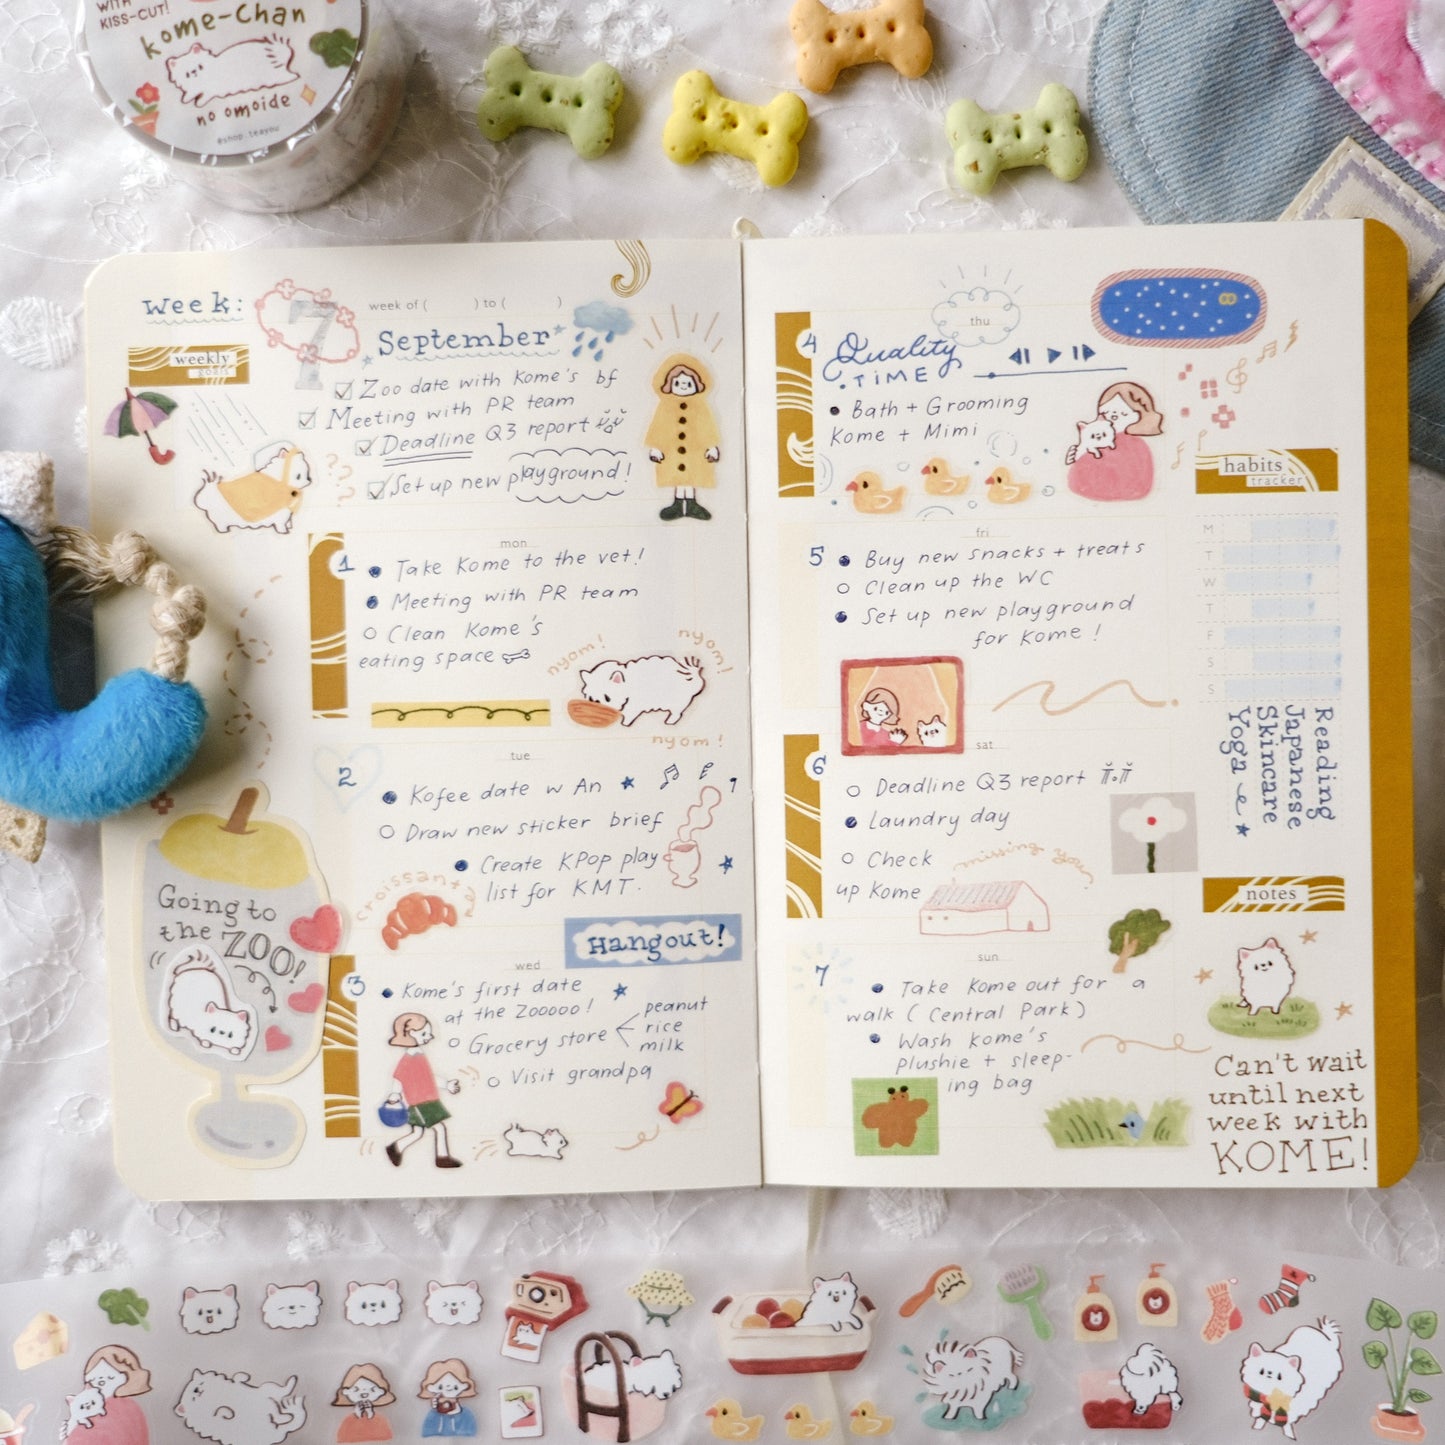 WITH
KISS-CUT!
kome-chan
no omoide
@shop.teayou
Week:
7
week of ( ) to ( )
September
weekly
goals
Zoo date with Kome's bf
Meeting with PR team
Deadline Q3 report
Set up new playground!
???
mon
1
Take Kome to the vet!
Meeting with PR team
Clean Kome's
eating space
nyom!
nyom!
nyom!
tue
2
Kofee date w An
Draw new sticker brief
Create KPop play
list for KMT.
croissant
Going to
the ZOO!
Hangout!
wed
3
Kome's first date
at the Zooooo!
Grocery store
peanut
rice
milk
Visit grandpa
thu
4
Quality
TIME
Bath + Grooming
Kome + Mimi
fri
5
Buy new snacks + treats
Clean up the WC
Set up new playground
for Kome!
sat
6
Deadline Q3 report
Laundry day
Check
up Kome
missing you
sun
7
Take Kome out for a
walk (Central Park)
Wash Kome's
plushie + sleep-
ing bag
habits
tracker
M
T
W
T
F
S
S
Reading
Japanese
Skincare
Yoga
notes
Can't wait
until next
week with
KOME!